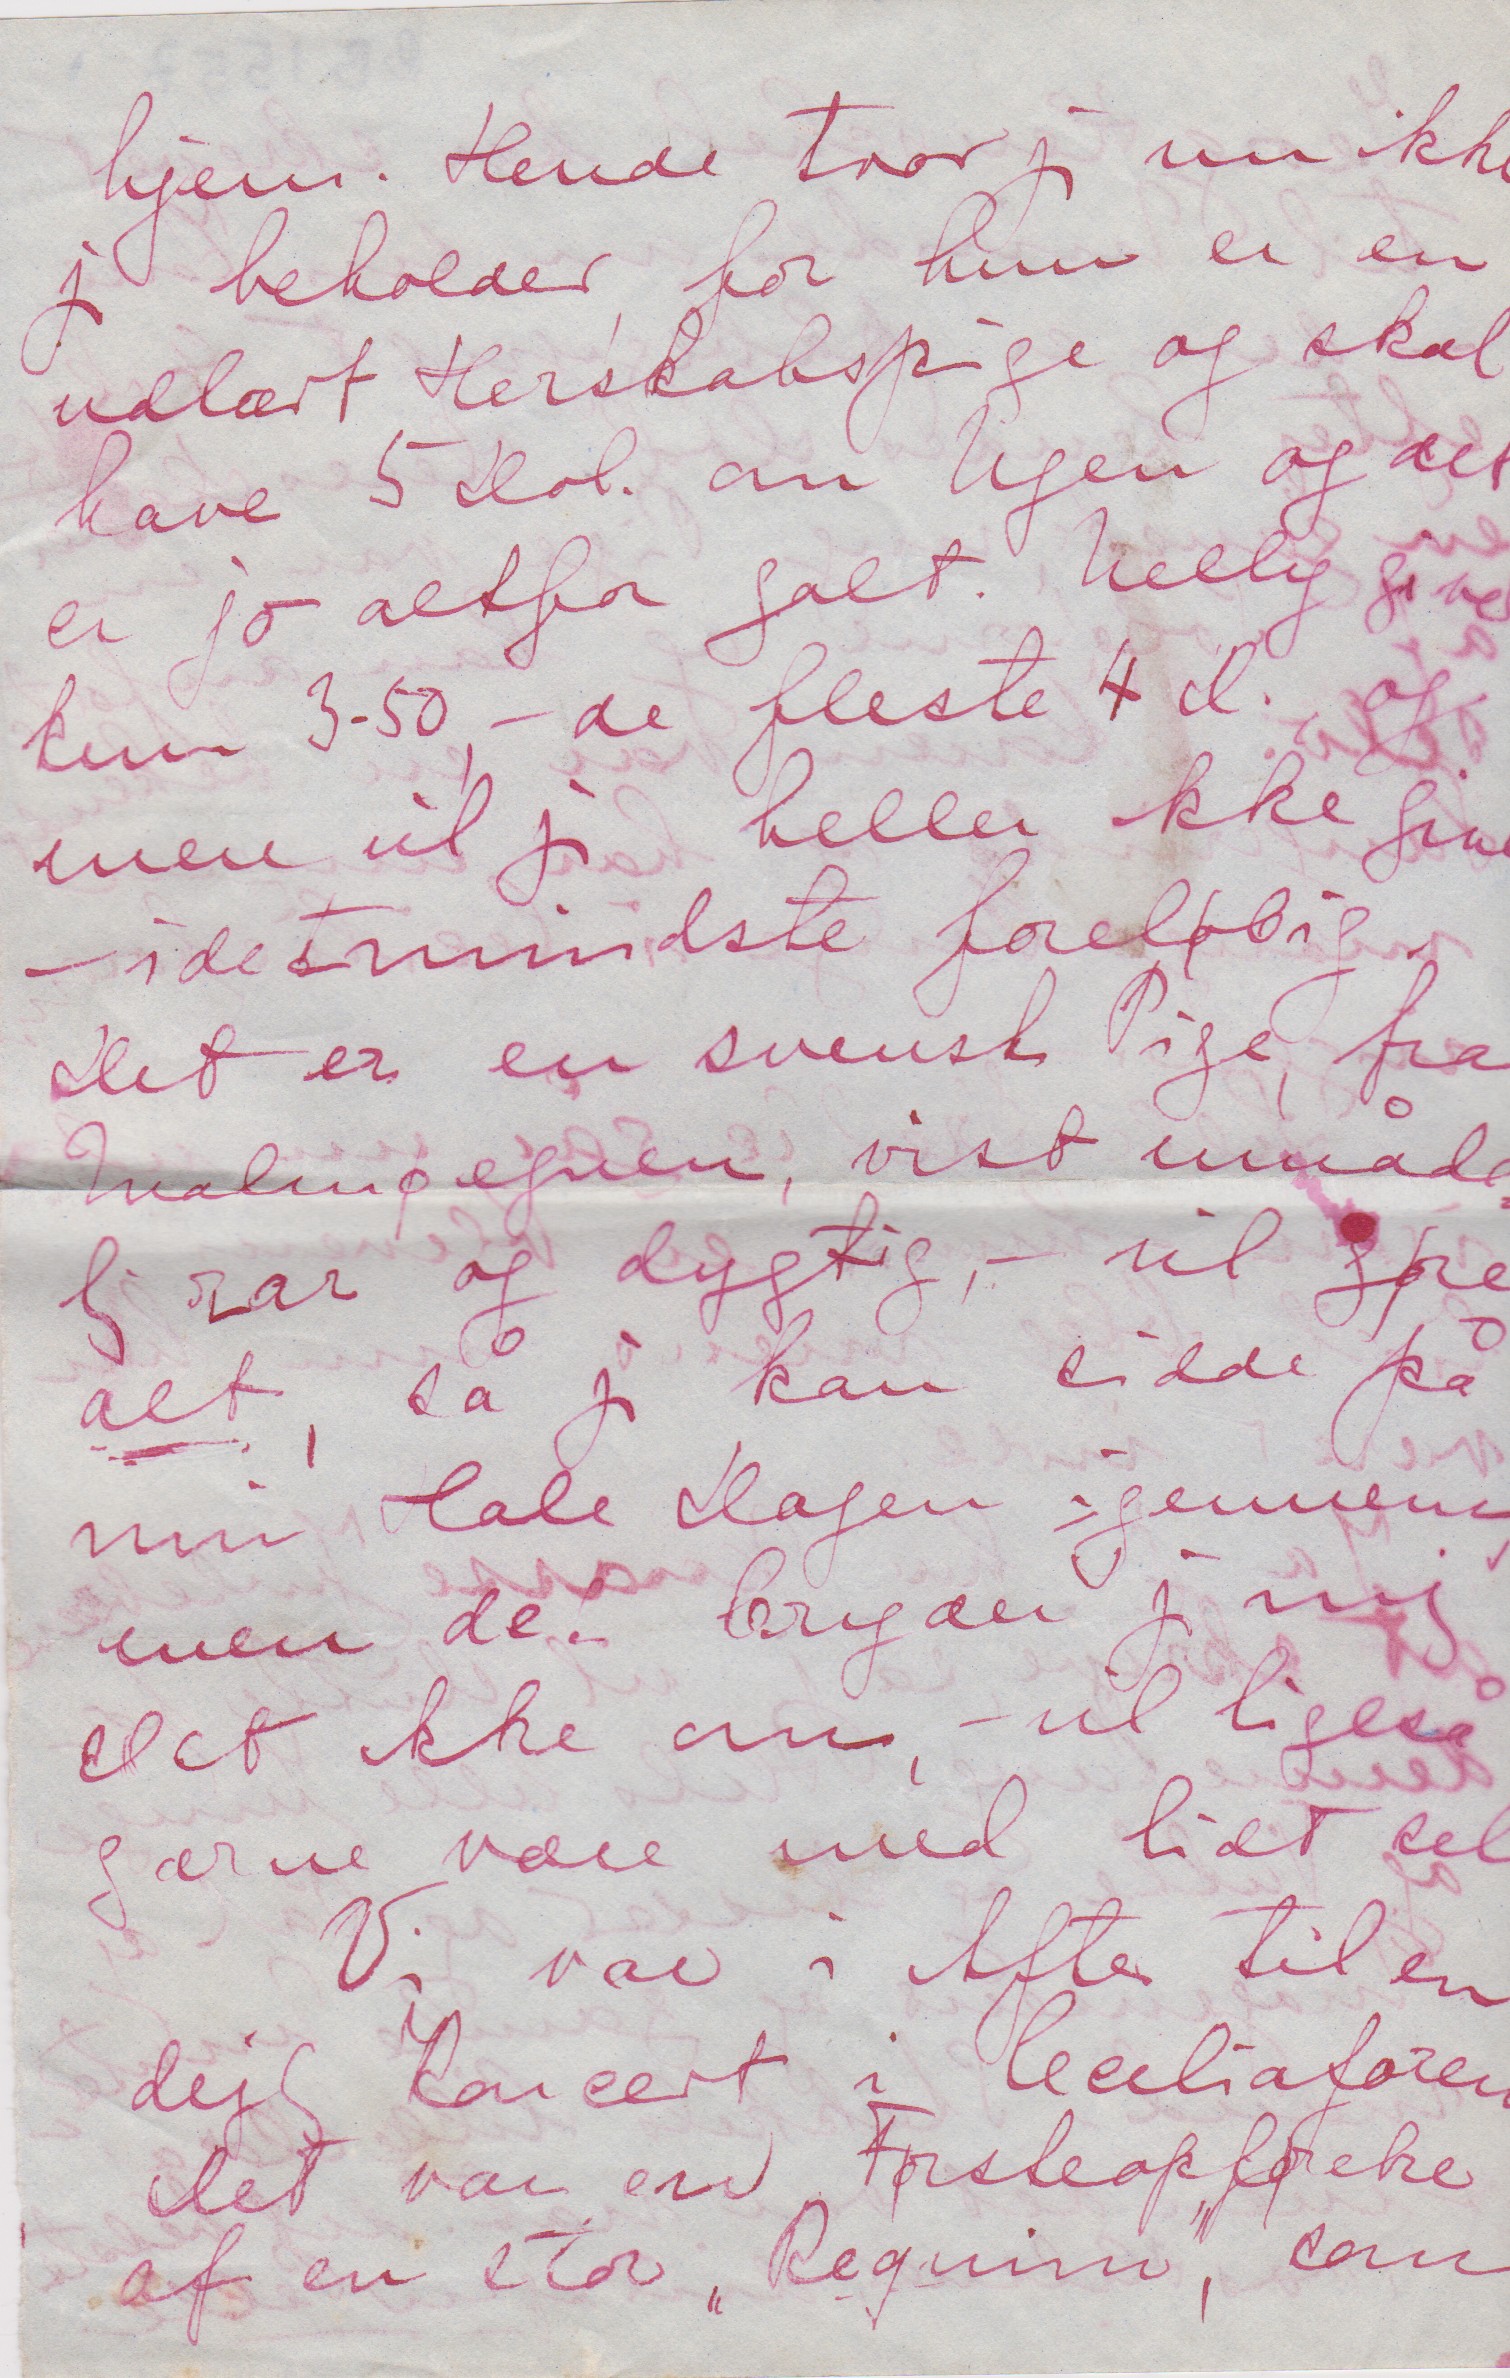 hjem. Hende tror j nu ikke
j beholder, for hun er en
udlært Herskabspige og skal
have 5 Dol. om Ugen og det
er jo altfor galt. Nelly giver
kun 3-50, - de fleste 4 D. og
men vil j heller ikke give
- idetmindste foreløbig.
Det er en svensk Pige, fra
Malmøegnen, vist umåde=
lig rar og dygtig, - vil gøre
alt, så j kan sidde på
min Hale Dagen igennem,
men det bryder j mig
slet ikke om, - vil ligeså
gærne være med lidt sel
Vi var i Aftes til en
dejlig Koncert i Ceciliaforen
Det var en Førsteopførelse
af en stor "Requim", som